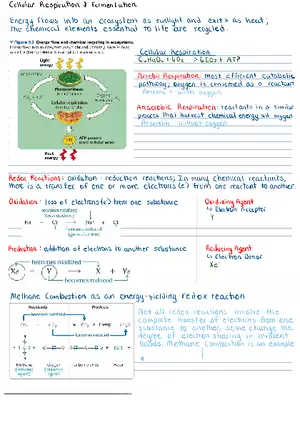 Cellular Respiration & Fermentation
Energy flows into an ecosystem as sunlight and exits as heat;
the chemical elements essential to life are recycled.
Figure 9.2 Energy flow and chemical recycling in ecosystems.
Light energy
Cellular Respiration
C₆H₁₂O₆ + 6O₂ → 6CO₂ + ATP
Aerobic Respiration: most efficient catabolic
pathway; oxygen is consumed as a reactant
Aerobic = with oxygen
Anaerobic Respiration: reactants in a similar
process that harvest chemical energy w/o oxygen
Anaerobic without oxygen
ATP powers
most cellular work
Heat energy
Redox Reactions: oxidation - reduction reactions; In many chemical reactants,
there is a transfer of one or more electrons (e⁻) from one reactant to another.
Oxidation: loss of electrons (e⁻) from one substance
Oxidizing Agent
Electron Acceptor
Y
becomes oxidized
Na + Cl → Na⁺ + Cl⁻
becomes reduced
Reduction: addition of electrons to another substance
Reducing Agent
Electron Donor
Xe⁻
becomes oxidized
Xe⁻ + Y → X + Ye⁻
becomes reduced
Methane Combustion as an energy-yielding redox reaction
Reactants
Products
becomes oxidized
becomes reduced
Not all redox reactions involve the
complete transfer of electrons from one
substance to another, some change the
degree of electron sharing in covalent
bonds. Methane combustion is an example
Methane
(reducing agent)
Oxygen
(oxidizing agent)
Carbon dioxide
Water